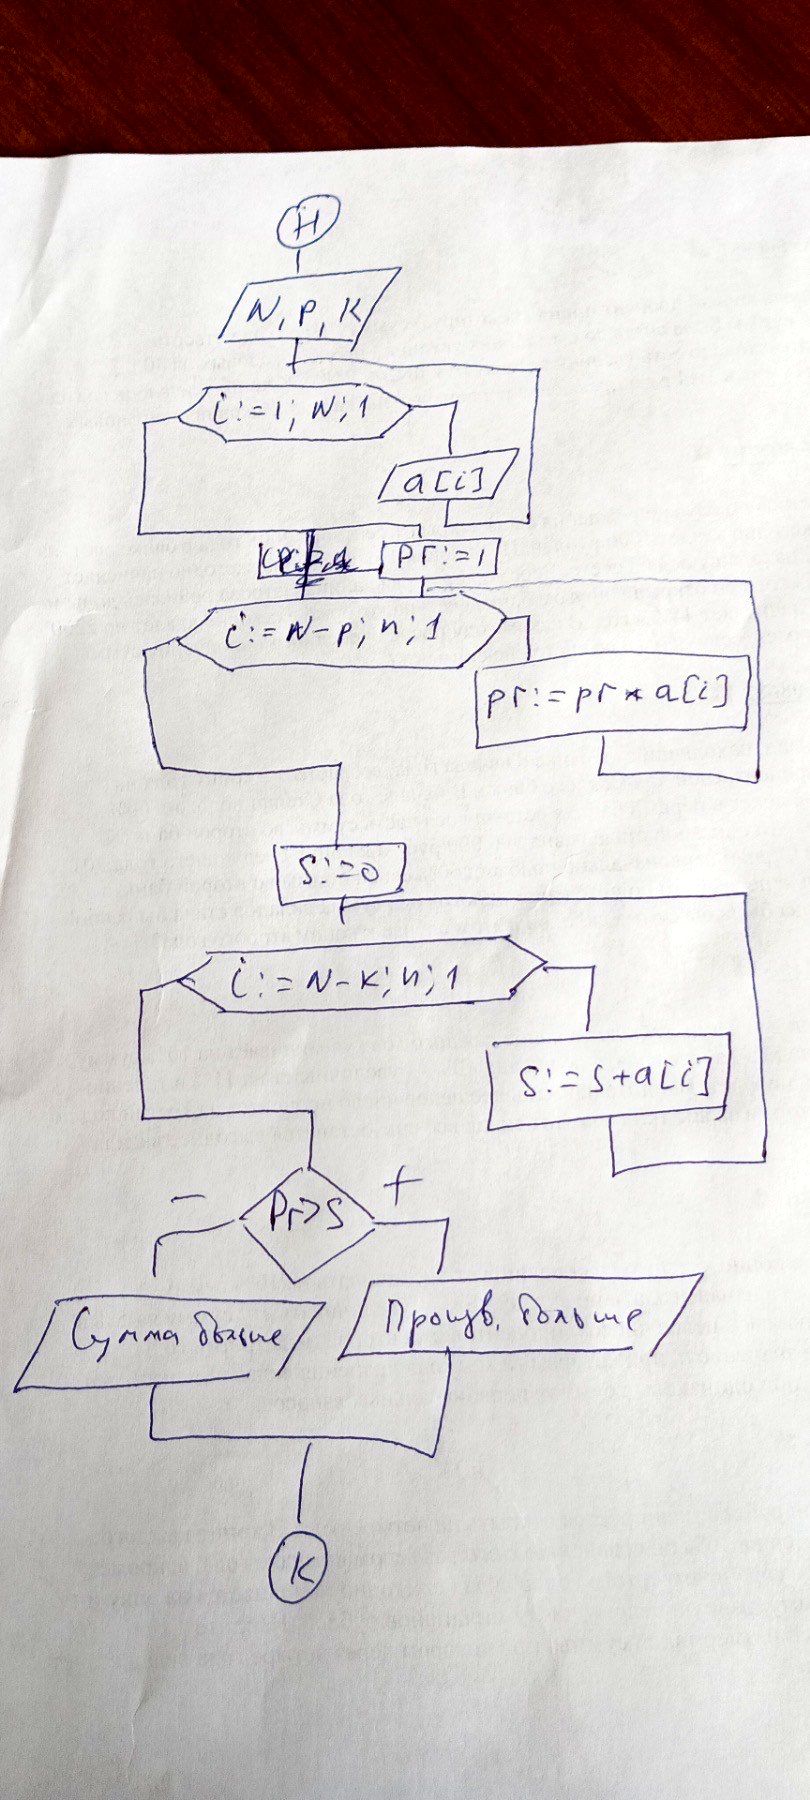 Н
N, P, K
i:=1; N; 1
a[i]
pr:=1
i:=N-p; n; 1
pr:=pr*a[i]
S:=0
i:=N-k; n; 1
S:=S+a[i]
Pr>S
-
+
Сумма больше
Произв. больше
К